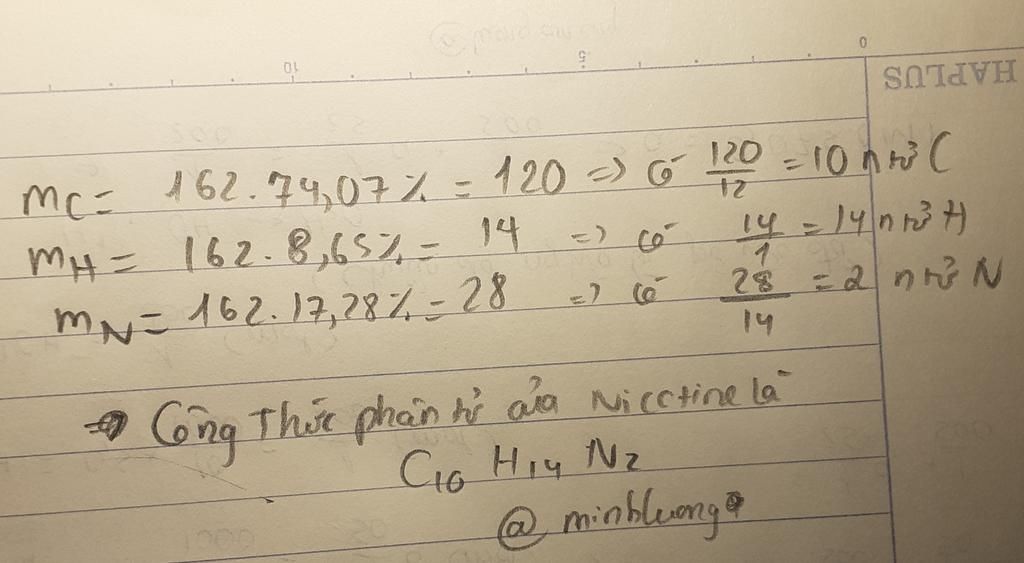 HAPLUS
0 5 10
mC = 162.74,07% = 120 => có 120/12 = 10 ntử C
mH = 162.8,65% = 14 => có 14/1 = 14 ntử H
mN = 162.17,28% = 28 => có 28/14 = 2 ntử N
=> Công Thức phân tử của Nicctine là
C10 H14 N2
@ minhluong